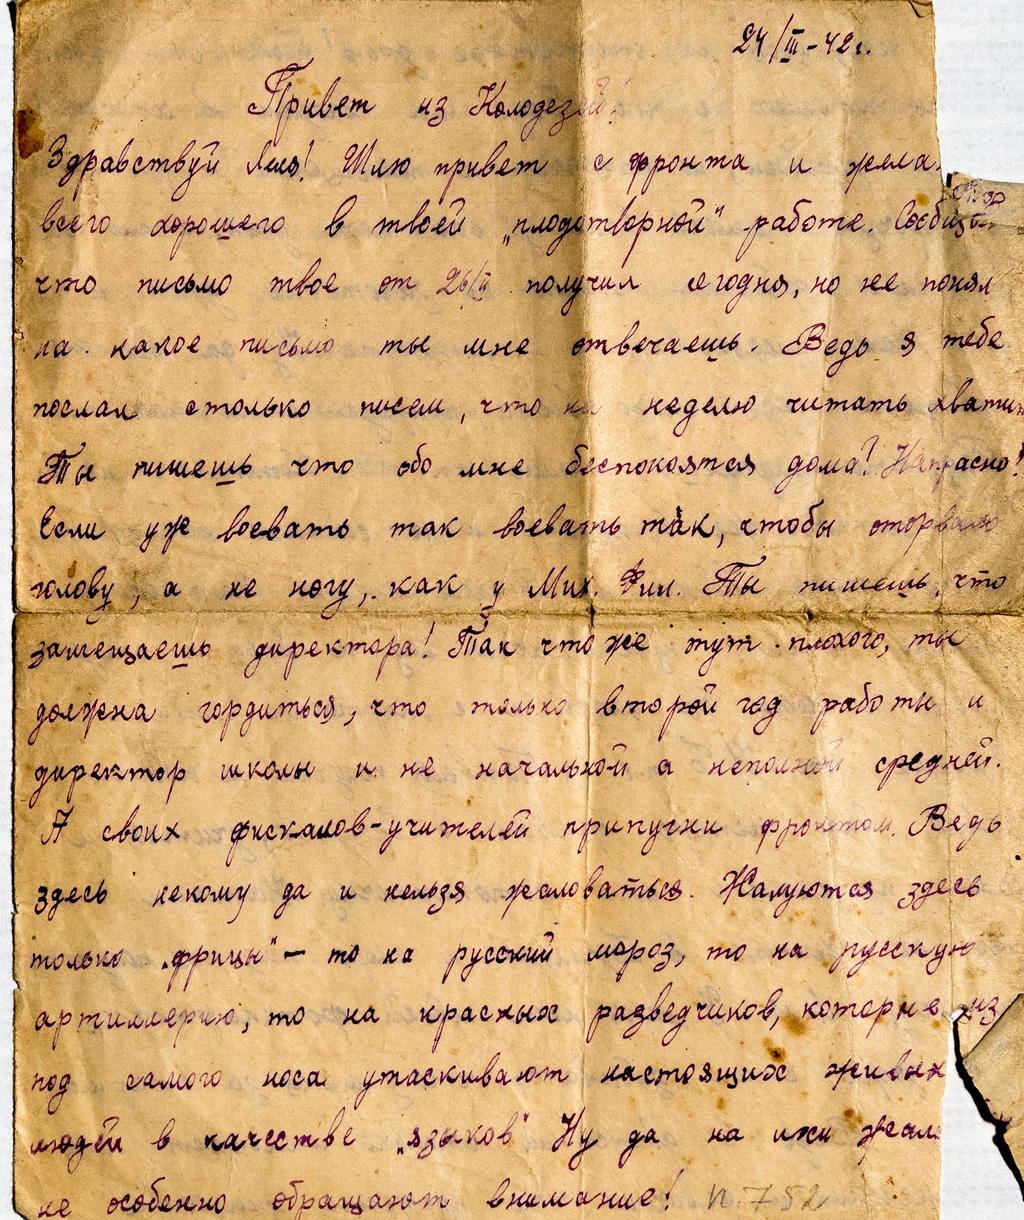 24/III-42г.
Привет из Колодезей!
Здравствуй Леля! Шлю привет с фронта и жела
всего хорошего в твоей „плодотворной" работе. Сообщаю
что письмо твое от 26/II получил сегодня, но не понял
на какое письмо ты мне отвечаешь. Ведь я тебе
послал столько писем, что на неделю читать хватит
Ты пишешь что обо мне беспокоятся дома! Напрасно!
Если уж воевать так воевать так, чтобы оторвало
голову, а не ногу, как у Мих. Фил. Ты пишешь, что
замещаешь директора! Так что же тут плохого, ты
должна гордиться, что только второй год работы и
директор школы и не начальной а неполной средней.
А своих фискалов-учителей припугни фронтом. Ведь
здесь некому да и нельзя жаловаться. Жалуются здесь
только „фрицы" – то на русский мороз, то на русскую
артиллерию, то на красных разведчиков, которые из
под самого носа утаскивают настоящих живых
людей в качестве „языков" Ну да на ихи жал
не особенно обращают внимание! п. 752